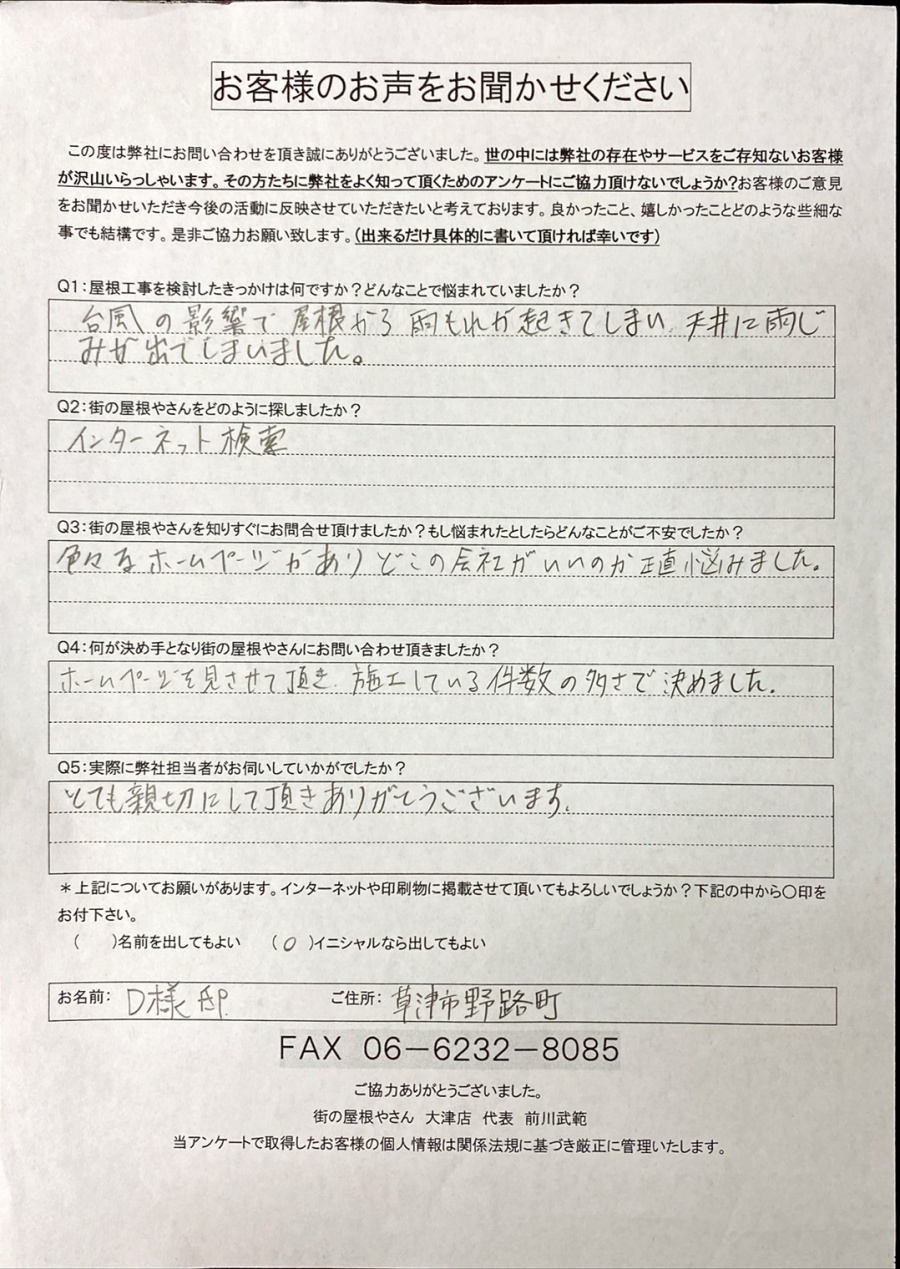 お客様のお声をお聞かせください
この度は弊社にお問い合わせを頂き誠にありがとうございました。世の中には弊社の存在やサービスをご存知ないお客様
が沢山いらっしゃいます。その方たちに弊社をよく知って頂くためのアンケートにご協力頂けないでしょうか?お客様のご意見
をお聞かせいただき今後の活動に反映させていただきたいと考えております。良かったこと、嬉しかったことどのような些細な
事でも結構です。是非ご協力お願い致します。(出来るだけ具体的に書いて頂ければ幸いです)
Q1:屋根工事を検討したきっかけは何ですか?どんなことで悩まれていましたか?
台風の影響で屋根から雨もれが起きてしまい、天井に雨じ
みが出てしまいました。
Q2:街の屋根やさんをどのように探しましたか?
インターネット検索
Q3:街の屋根やさんを知りすぐにお問合せ頂けましたか?もし悩まれたとしたらどんなことがご不安でしたか?
色々なホームページがありどこの会社がいいのか正直悩みました。
Q4:何が決め手となり街の屋根やさんにお問い合わせ頂きましたか?
ホームページを見させて頂き、施工している件数の多さで決めました。
Q5:実際に弊社担当者がお伺いしていかがでしたか?
とても親切にして頂きありがとうございます。
*上記についてお願いがあります。インターネットや印刷物に掲載させて頂いてもよろしいでしょうか?下記の中から〇印を
お付下さい。
( )名前を出してもよい (○)イニシャルなら出してもよい
お名前: D様邸 ご住所: 草津市野路町
FAX 06-6232-8085
ご協力ありがとうございました。
街の屋根やさん 大津店 代表 前川武範
当アンケートで取得したお客様の個人情報は関係法規に基づき厳正に管理いたします。